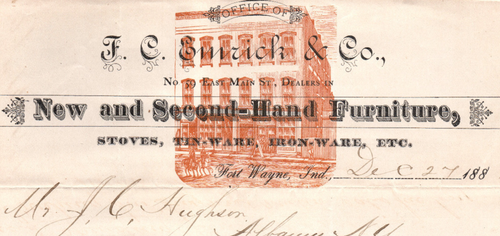 OFFICE OF
F. C. Emrick & Co.,
No 59 East Main St., Dealers in
New and Second-Hand Furniture,
STOVES, TIN-WARE, IRON-WARE, ETC.
Fort Wayne, Ind., Dec 27 188
Mr. J. C. Hughson
Albany N.Y.